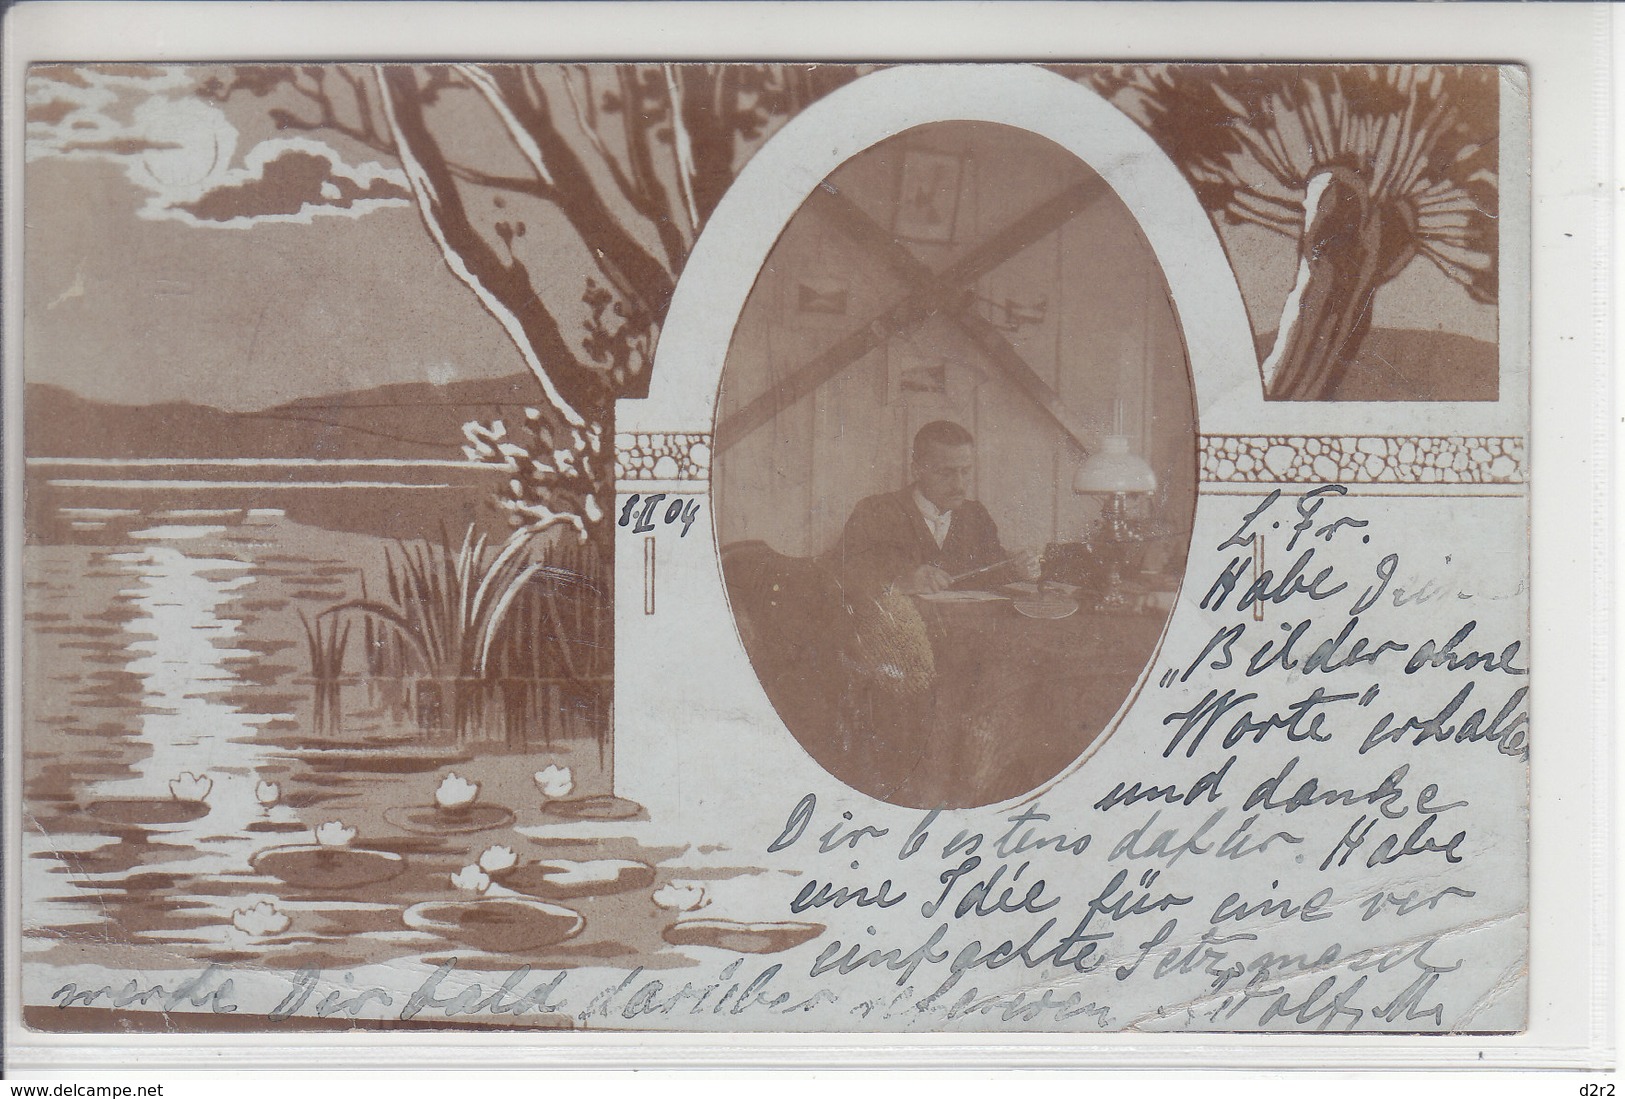 8.II 04
L. Fr.
Habe Dein
„Bilder ohne
Worte" erhalten
und danke
Dir bestens dafür. Habe
eine Idée für eine ver
einfachte Setzmasch
werde Dir bald darüber referieren Wolf, M.
www.delcampe.net
d2r2